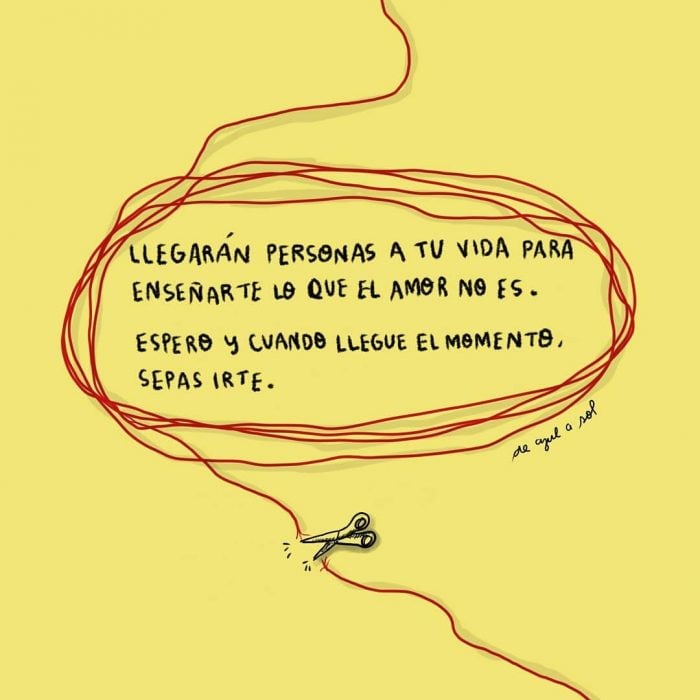 LLEGARÁN PERSONAS A TU VIDA PARA
ENSEÑARTE LO QUE EL AMOR NO ES.
ESPERO Y CUANDO LLEGUE EL MOMENTO,
SEPAS IRTE.
de azul a sol